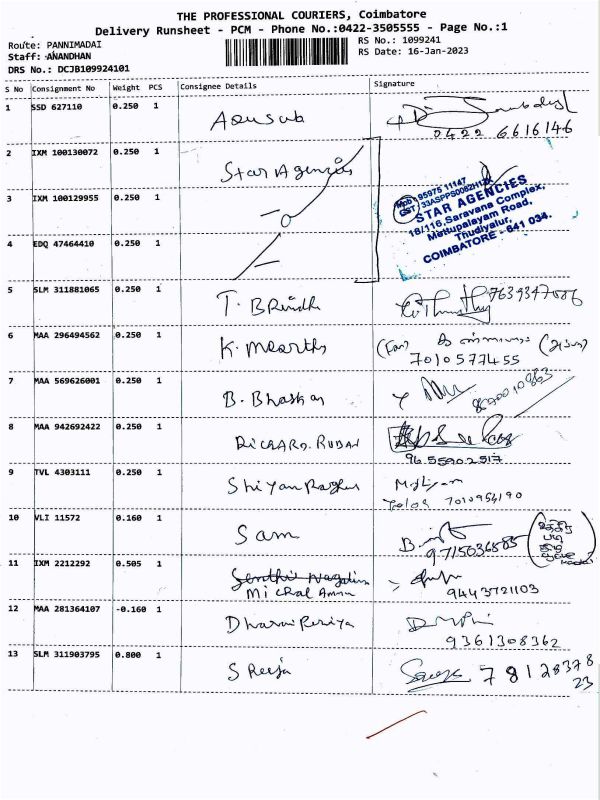 THE PROFESSIONAL COURIERS, Coimbatore
Delivery Runsheet - PCM - Phone No.:0422-3505555 - Page No.:1
Route: PANNIMADAI
Staff: ANANDHAN
DRS No.: DCJB109924101
RS No.: 1099241
RS Date: 16-Jan-2023
S No Consignment No Weight PCS Consignee Details Signature
1 SSD 627110 0.250 1
0422 6616146
2 IXM 100130072 0.250 1 Star Agencies
3 IXM 100129955 0.250 1
4 EDQ 47464410 0.250 1
Mob : 95975 11147
STAR AGENCIES
18/116, Saravana Complex,
Mettupalayam Road,
Thudiyalur,
COIMBATORE - 641 034.
5 SLM 311881065 0.250 1 T. Brindh
6 MAA 296494562 0.250 1 K. Moorthy
7010577455
7 MAA 569626001 0.250 1 B. Bhaskar
8 MAA 942692422 0.250 1 RICHARD. RUBAN
9655902517
9 TVL 4303111 0.250 1
7010954190
10 VLI 11572 0.160 1 Sam
9715036585
11 IXM 2212292 0.505 1
9443721103
12 MAA 281364107 -0.160 1 Dharani Periya
9361308362
13 SLM 311903795 0.800 1 Sreeja
78128378
23